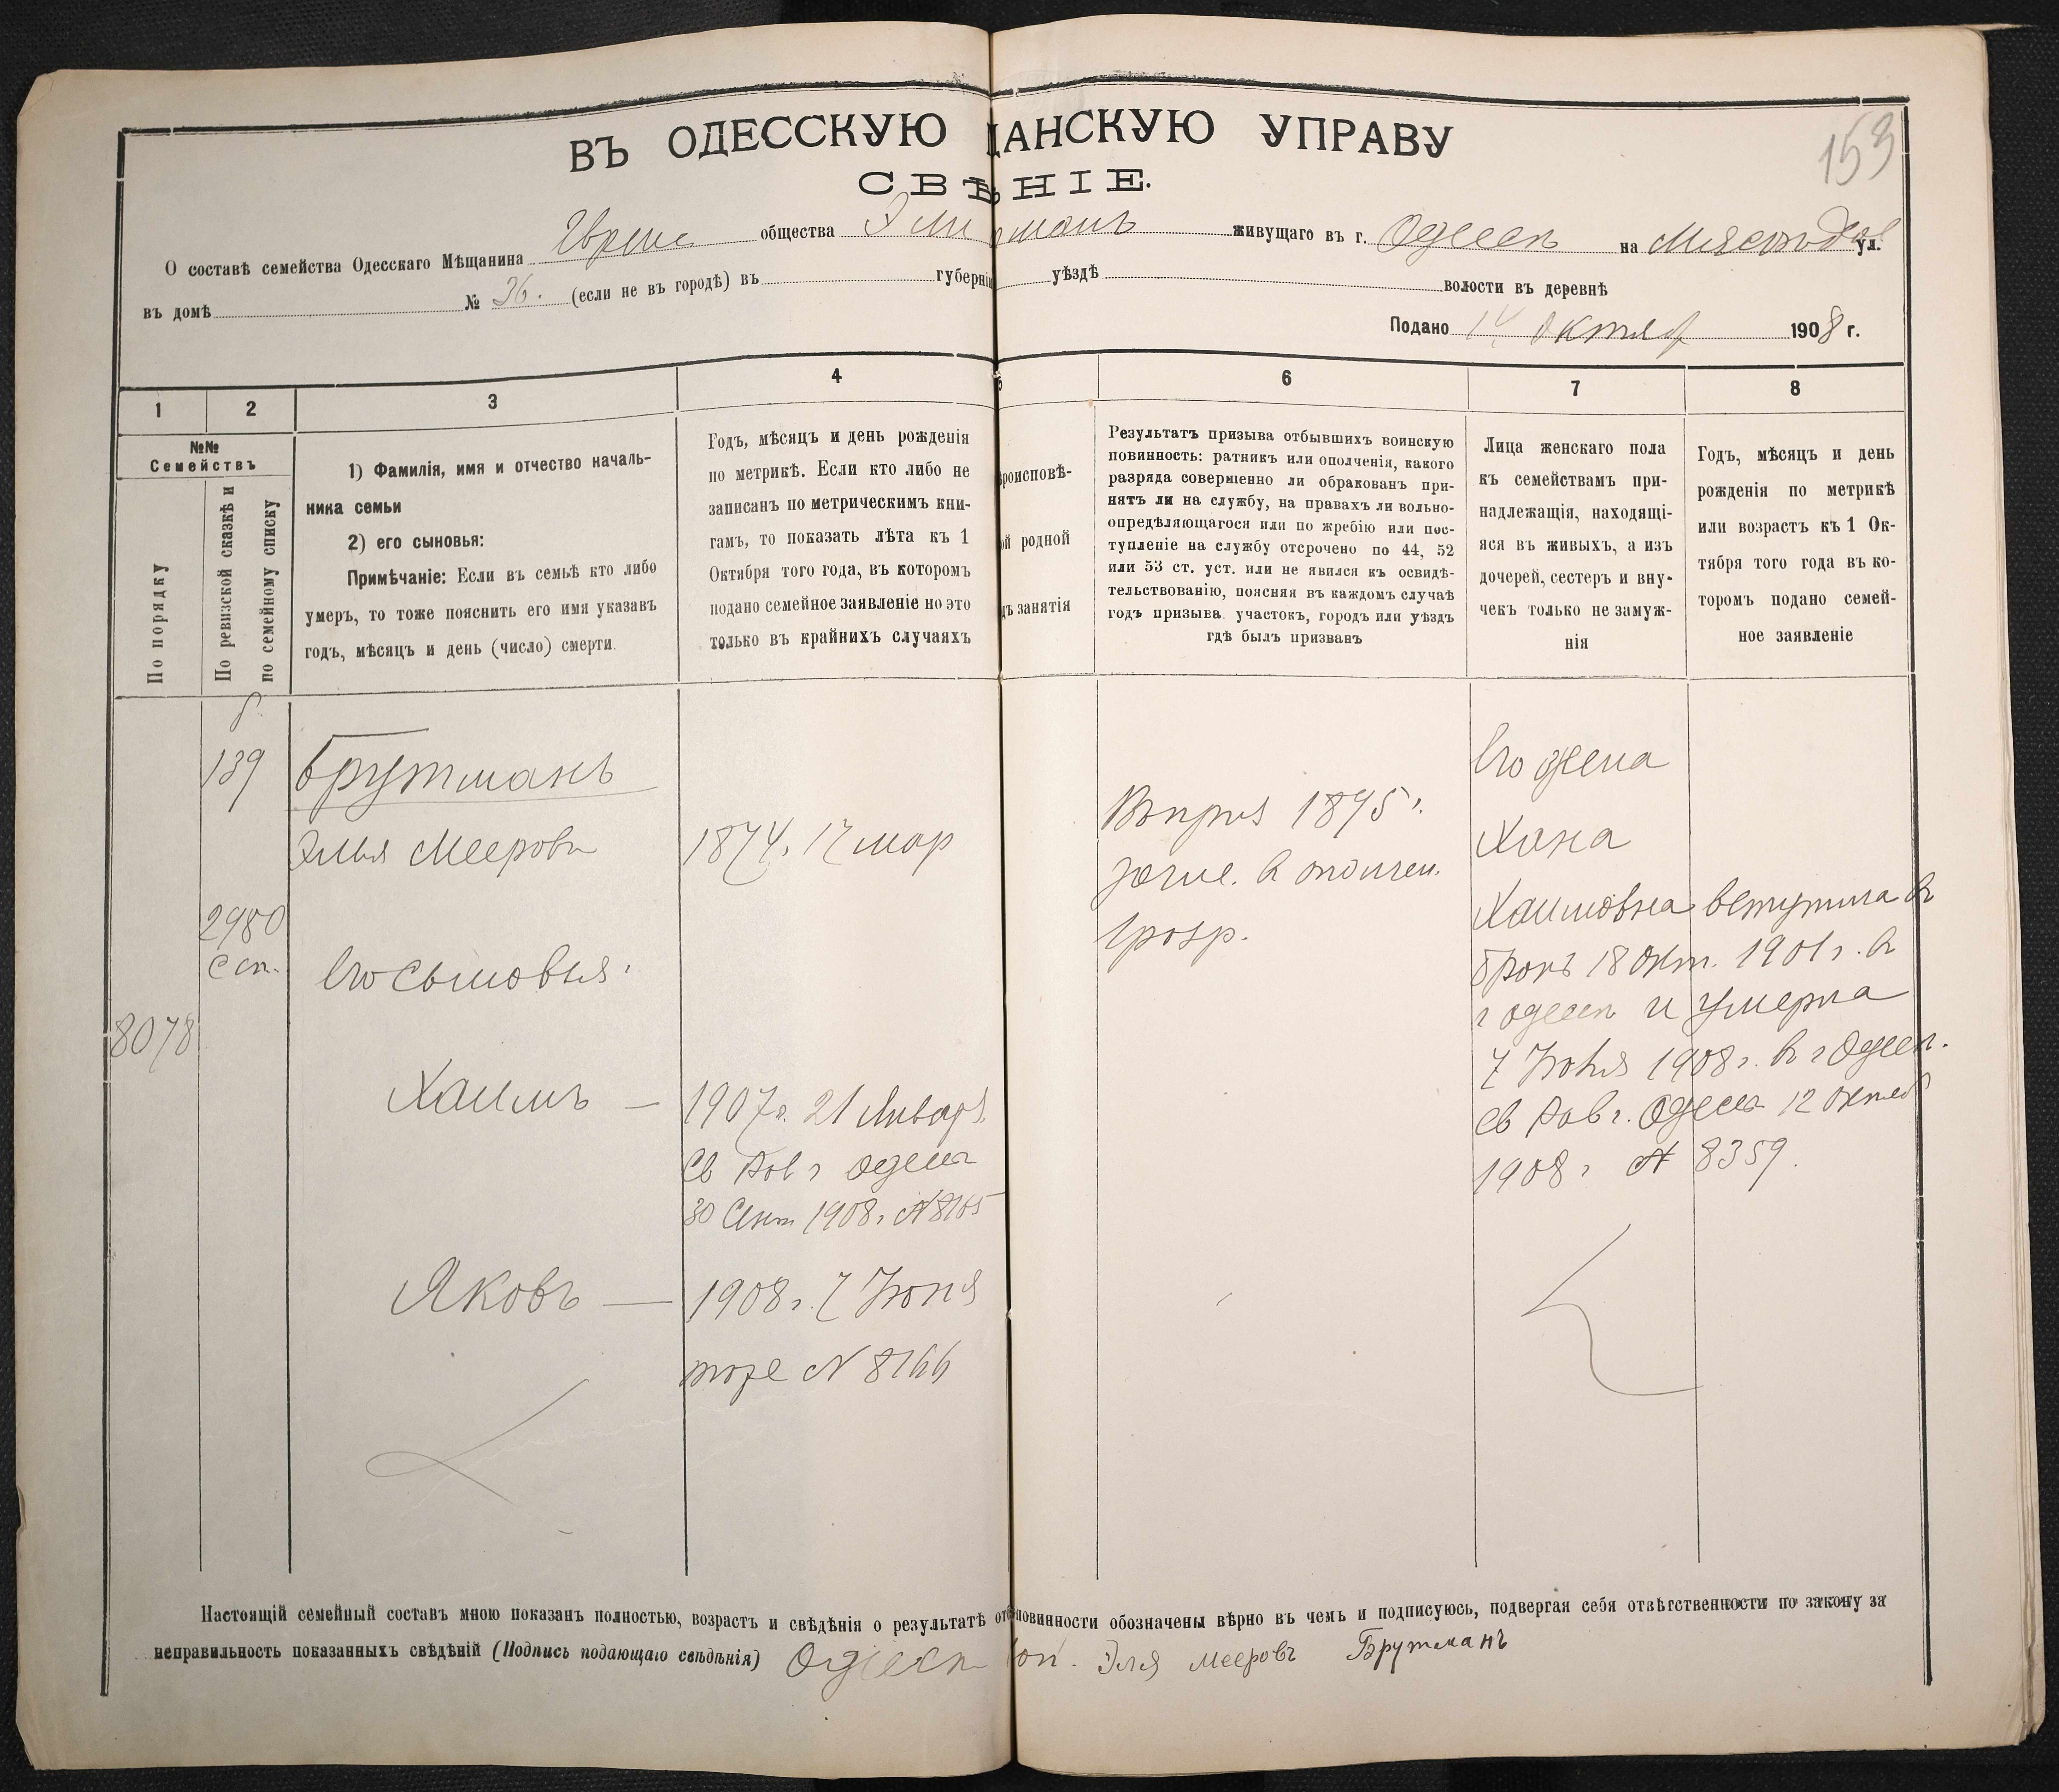 153
ВЪ ОДЕССКУЮ ЩАНСКУЮ УПРАВУ
СВѢНІЕ.
О составѣ семейства Одесскаго Мѣщанина общества живущаго въ г. Одессѣ на ул.
въ домѣ № 36. (если не въ городѣ) въ губерні уѣздѣ волости въ деревнѣ
Подано 14 Октяб 1908 г.
1 2 3 4 5 6 7 8
№№
Семействъ
По порядку
По ревизской сказкѣ и
по семейному списку
1) Фамилія, имя и отчество началь-
ника семьи
2) его сыновья:
Примѣчаніе: Если въ семьѣ кто либо
умеръ, то тоже пояснить его имя указавъ
годъ, мѣсяцъ и день (число) смерти.
Годъ, мѣсяцъ и день рожденія
по метрикѣ. Если кто либо не
записанъ по метрическимъ кни-
гамъ, то показать лѣта къ 1
Октября того года, въ которомъ
подано семейное заявленіе но это
только въ крайнихъ случаяхъ
роисповѣ-
ой родной
дъ занятія
Результатъ призыва отбывшихъ воинскую
повинность: ратникъ или ополченія, какого
разряда совершенно ли обракованъ при-
нятъ ли на службу, на правахъ ли вольно-
опредѣляющагося или по жребію или пос-
тупленіе на службу отсрочено по 44, 52
или 53 ст. уст. или не явился къ освидѣ-
тельствованію, поясняя въ каждомъ случаѣ
годъ призыва участокъ, городъ или уѣздъ
гдѣ былъ призванъ
Лица женскаго пола
къ семействамъ при-
надлежащія, находящі-
яся въ живыхъ, а изъ
дочерей, сестеръ и вну-
чекъ только не замуж-
нія
Годъ, мѣсяцъ и день
рожденія по метрикѣ
или возрастъ къ 1 Ок-
тября того года въ ко-
торомъ подано семей-
ное заявленіе
139
Брутманъ
Элья Мееровъ
1874. 17 мар
2980
С сп.
Его сыновья:
8078
Хаимъ — 1907 г. 21 Января
Св Рав г Одессы
30 Сент 1908 г № 8165
Яковъ — 1908 г. 7 Іюня
тоже № 8166
Въ приз 1895 г.
зачис. в ополчен.
1 разр.
Его жена
Хана
Хаимовна вступила в
бракъ 18 Окт. 1901 г. в
г Одессѣ и умерла
7 Іюня 1908 г. в г Одесс.
Св Рав г. Одессы 12 Октяб
1908 г № 8359.
Настоящій семейный составъ мною показанъ полностью, возрастъ и свѣдѣнія о результатѣ отб повинности обозначены вѣрно въ чемъ и подписуюсь, подвергая себя отвѣтственности по закону за
неправильность показанныхъ свѣдѣній (Подпись подающаго свѣдѣнія) Элья Мееровъ Брутманъ